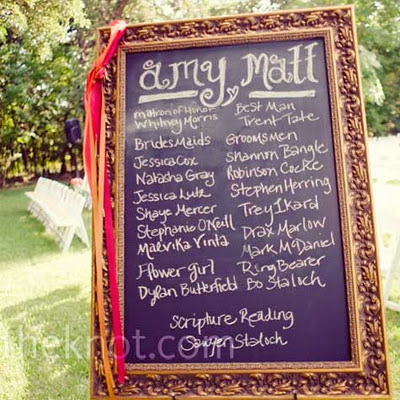 amy, Matt
matron of Honor
Whitney Morris
Bridesmaids
Jessica Cox
Natasha Gray
Jessica Lutz
Shaye Mercer
Stephanie O'Neill
Malvika Vinta
Flower girl
Dylan Butterfield
Best Man
Trent Tate
Groomsmen
Shannon Bangle
Robinson Cocke
Stephen Herring
Trey Ikard
Drax Marlow
Mark McDaniel
Ring Bearer
Bo Staloch
Scripture Reading
Sawyer Staloch
theknot.com